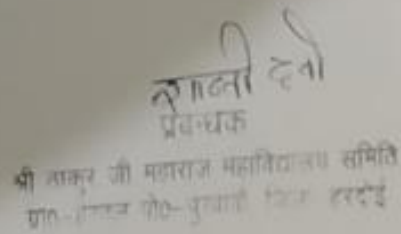 शान्ती देवी
प्रबन्धक
श्री ठाकुर जी महाराज महाविद्यालय समिति
ग्राम- पो०- जिला हरदोई